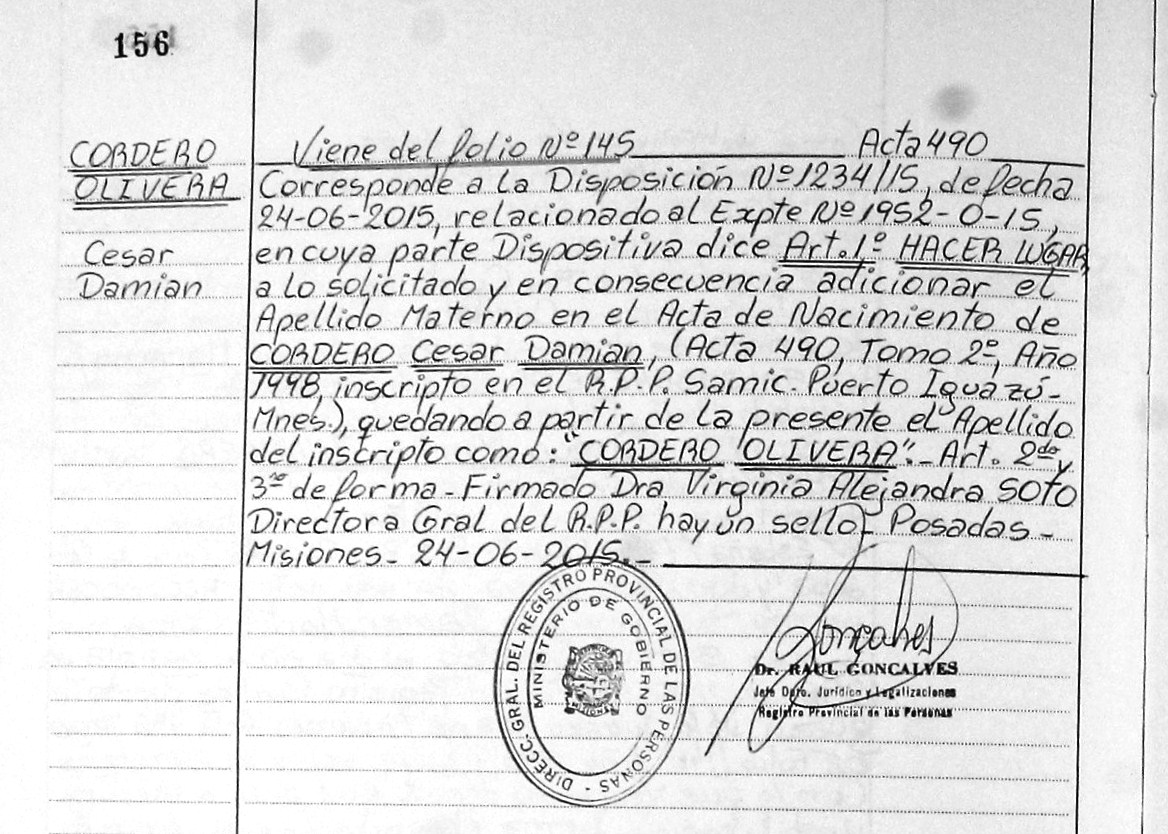 156
CORDERO
OLIVERA
Cesar
Damian
Viene del folio Nº 145 Acta 490
Corresponde a la Disposición Nº 1234/15, de fecha
24-06-2015, relacionado al Expte Nº 1952-O-15,
en cuya parte Dispositiva dice Art. 1º HACER LUGAR
a lo solicitado y en consecuencia adicionar el
Apellido Materno en el Acta de Nacimiento de
CORDERO Cesar Damian, (Acta 490, Tomo 2º, Año
1998, inscripto en el R.P.P. Samic. Puerto Iguazú-
Mnes.), quedando a partir de la presente el Apellido
del inscripto como: "CORDERO OLIVERA".- Art. 2do y
3ro de forma - Firmado Dra Virginia Alejandra SOTO
Directora Gral del R.P.P. hay un sello - Posadas -
Misiones - 24-06-2015.-
DIRECC. GRAL. DEL REGISTRO PROVINCIAL DE LAS PERSONAS -
MINISTERIO DE GOBIERNO
MISIONES
Gonçalves
Dr. RAUL GONCALVES
Jefe Dpto. Jurídico y Legalizaciones
Registro Provincial de las Personas